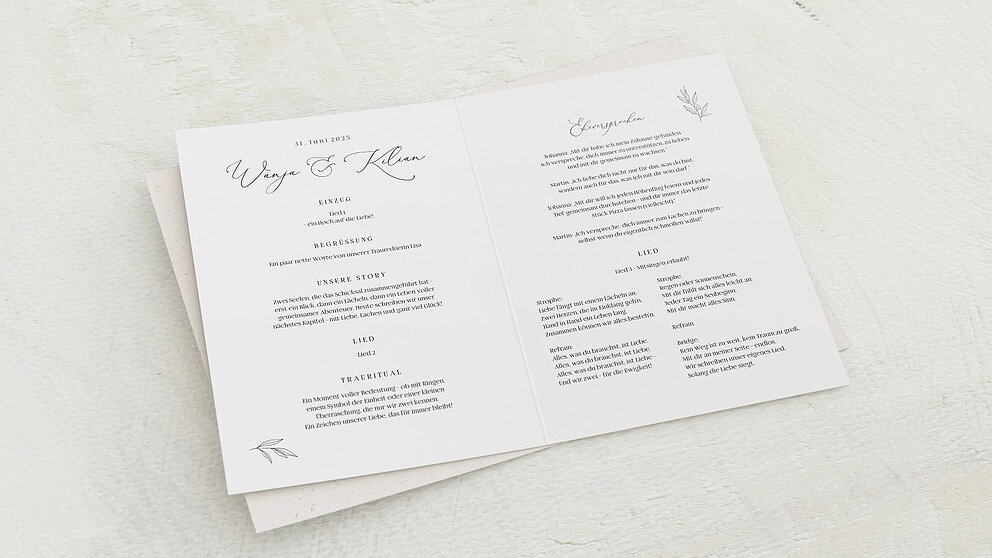 31. Juni 2025
Wanja & Kilian
EINZUG
Lied 1
- ein Hoch auf die Liebe!
BEGRÜSSUNG
Ein paar nette Worte von unserer Traurednerin Lisa
UNSERE STORY
Zwei Seelen, die das Schicksal zusammengeführt hat -
erst ein Blick, dann ein Lächeln, dann ein Leben voller
gemeinsamer Abenteuer. Heute schreiben wir unser
nächstes Kapitel - mit Liebe, Lachen und ganz viel Glück!
LIED
Lied 2
TRAURITUAL
Ein Moment voller Bedeutung - ob mit Ringen,
einem Symbol der Einheit oder einer kleinen
Überraschung, die nur wir zwei kennen.
Ein Zeichen unserer Liebe, das für immer bleibt!
Eheversprechen
Johanna: „Mit dir habe ich mein Zuhause gefunden
Ich verspreche, dich immer zu unterstützen, zu lieben
und mit dir gemeinsam zu wachsen."
Martin: „Ich liebe dich nicht nur für das, was du bist,
sondern auch für das, was ich mit dir sein darf."
Johanna: „Mit dir will ich jeden Höhenflug feiern und jedes
Tief gemeinsam durchstehen - und dir immer das letzte
Stück Pizza lassen (vielleicht)."
Martin: „Ich verspreche, dich immer zum Lachen zu bringen -
selbst wenn du eigentlich schmollen willst!"
LIED
Lied 3 - Mitsingen erlaubt!
Strophe:
Liebe fängt mit einem Lächeln an.
Zwei Herzen, die im Einklang geh'n.
Hand in Hand ein Leben lang.
Zusammen können wir alles besteh'n.
Refrain:
Alles, was du brauchst, ist Liebe,
Alles, was du brauchst, ist Liebe.
Alles, was du brauchst, ist Liebe -
Und wir zwei - für die Ewigkeit!
Strophe:
Regen oder Sonnenschein,
Mit dir fühlt sich alles leicht an.
Jeder Tag ein Neubeginn,
Mit dir macht alles Sinn.
Refrain
Bridge:
Kein Weg ist zu weit, kein Traum zu groß,
Mit dir an meiner Seite - endlos.
Wir schreiben unser eigenes Lied.
Solang die Liebe siegt.